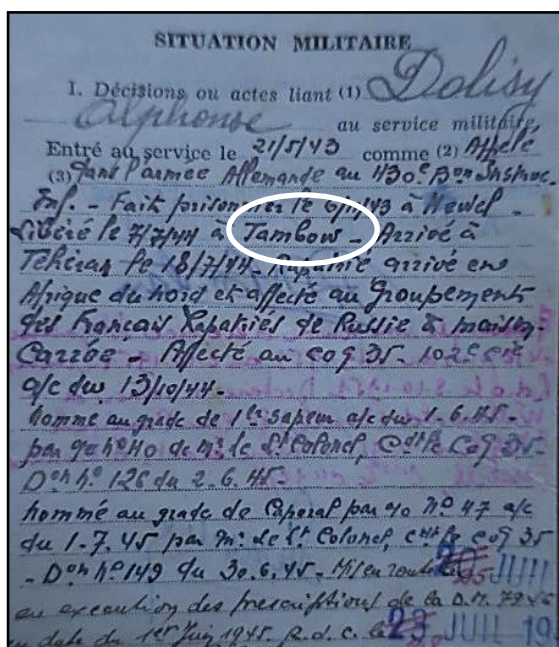 SITUATION MILITAIRE
I. Décisions ou actes liant (1) Dolisy
Alphonse au service militaire,
Entré au service le 21/5/43 comme (2) Appelé
(3) dans l'armée Allemande au 430e Bon Instruc.
Inf. - Fait prisonnier le 6/11/43 à Newel -
Libéré le 7/7/44 à Tambow - Arrivé à
Téhéran le 18/7/44 - Rapatrié arrivé en
Afrique du nord et affecté au Groupement
des Français Rapatriés de Russie à maison-
Carrée - Affecté au COG 35 - 102e Cie
a/c du 13/10/44 -
nommé au grade de 1er sapeur a/c du 1.6.45 -
par no 40 de mr le Lt Colonel, Cdt le COG 35 -
Don no 126 du 2.6.45 -
nommé au grade de Caporal par no 47 a/c
du 1.7.45 par mr le Lt Colonel, Cdt le COG 35
- Don no 149 du 30.6.45 - Mis en route le JUIL
en exécution des prescriptions de la D.M.
en date du 1er Juin 1945. R.d.c. le JUIL 19